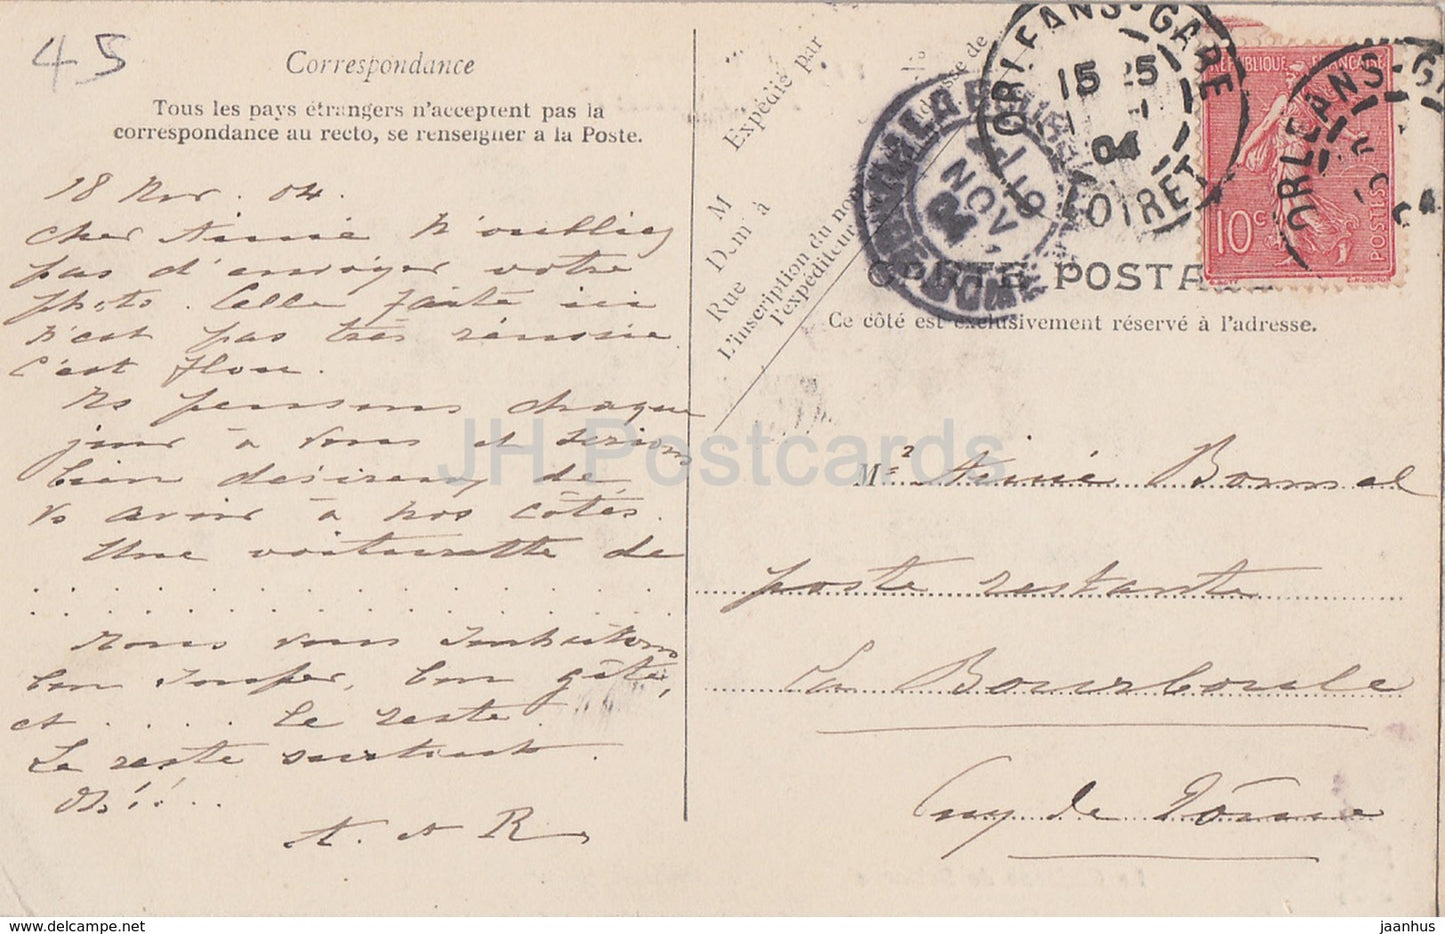 45
Correspondance
Tous les pays étrangers n'acceptent pas la
correspondance au recto, se renseigner à la Poste.
18 Nov. 04.
Cher Aimé N'oubliez
pas d'envoyer votre
photo. Celle faite ici
n'est pas très réussie
c'est floue.
Ns pensons chaque
jour à vous et serions
bien désireux de
vs avoir à nos côtés.
Une voiturette de
. . . . . . . . . . . . . . . .
. . . . . . . . . . . . . . . .
Nous vous souhaitons
bon souper, bon gîte,
et . . . . . le reste.
Le reste surtout.
Oh!!...
A. et R
M
Expédié par
M
Demt à
Rue
No
L'inscription du nom et adresse de
l'expéditeur
ORLEANS-GARE
15 25
04
LOIRET
PUY-DE-DOME
NOV
RÉPUBLIQUE FRANÇAISE
10 c
POSTES
ORLEANS-G
CARTE POSTALE
Ce côté est exclusivement réservé à l'adresse.
Mr Aimé Bonnel
poste restante
La Bourboule
Puy de Dôme
JH Postcards
jaanhus